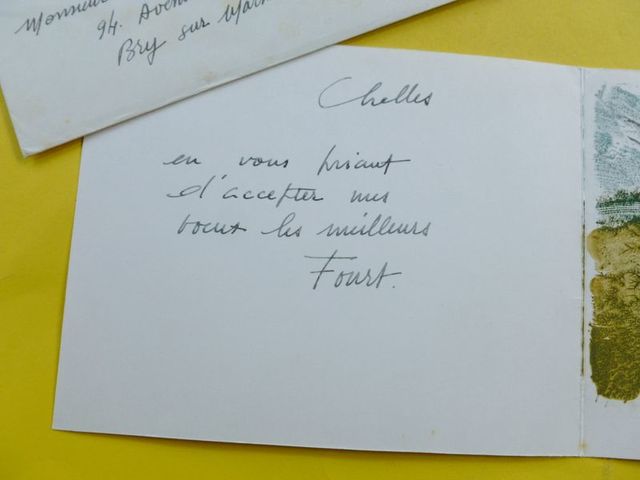 Monsieur
94. Aven
Bry sur Marn
Chelles
en vous priant
d'accepter mes
voeux les meilleurs
Fourt.